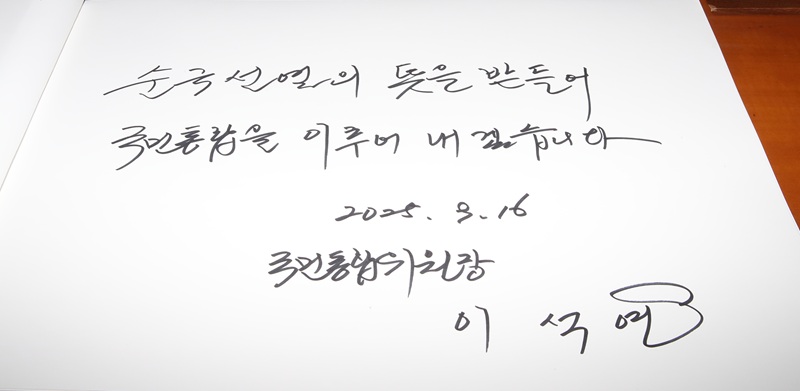 순국선열의 뜻을 받들어
국민통합을 이루어 내겠습니다
2025. 9. 16
국민통합위원장
이 석 연